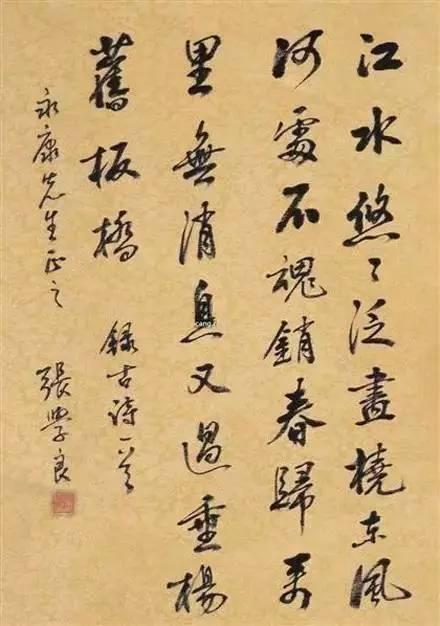 江水悠〻泛畫橈东風
何處不魂銷春歸万
里無消息又過垂楊
舊板橋
錄古诗一首
永康先生正之
張學良